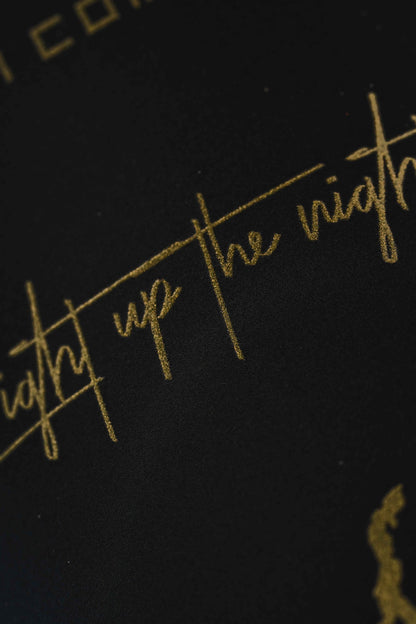 ight up the night